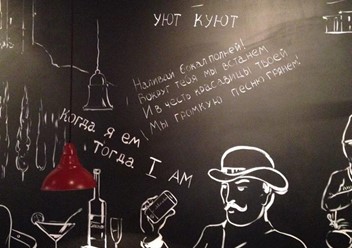 УЮТ КУЮТ
Наливай бокал полней!
Вокруг тебя мы встанем
И в честь красавицы твоей
Мы громкую песню грянем!
Когда я ем
Тогда I AM